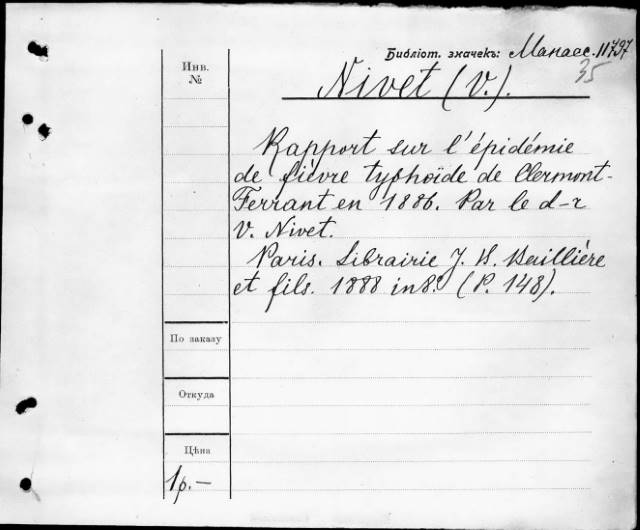 Библіот. значекъ: Манасс. 11497
35
Инв.
№
Nivet (V.).
Rapport sur l'épidémie
de fièvre typhoïde de Clermont-
Ferrant en 1886. Par le d-r
V. Nivet.
Paris. Librairie J. B. Baillière
et fils. 1888 in 8º. (P. 148).
По заказу
Откуда
Цѣна
1р.—